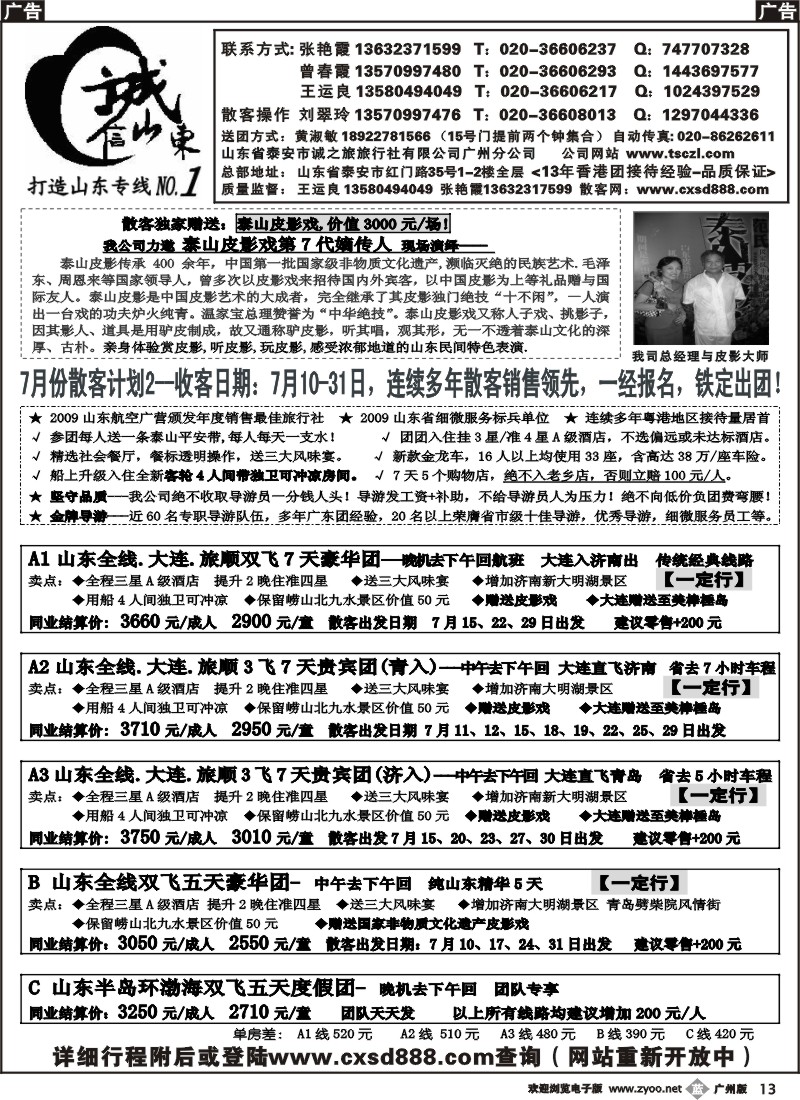 广告
广告
誠信山東
打造山东专线NO.1
联系方式: 张艳霞 13632371599 T: 020-36606237 Q: 747707328
曾春霞 13570997480 T: 020-36606293 Q: 1443697577
王运良 13580494049 T: 020-36606217 Q: 1024397529
散客操作 刘翠玲 13570997476 T: 020-36608013 Q: 1297044336
送团方式: 黄淑敏 18922781566 (15号门提前两个钟集合) 自动传真: 020-86262611
山东省泰安市诚之旅旅行社有限公司广州分公司 公司网站 www.tsczl.com
总部地址: 山东省泰安市红门路35号1-2楼全层 <13年香港团接待经验-品质保证>
质量监督: 王运良 13580494049 张艳霞13632317599 散客网: www.cxsd888.com
散客独家赠送: 泰山皮影戏,价值 3000 元/场!
我公司力邀 泰山皮影戏第 7 代嫡传人 现场演绎——
泰山皮影传承 400 余年, 中国第一批国家级非物质文化遗产,濒临灭绝的民族艺术. 毛泽
东、周恩来等国家领导人, 曾多次以皮影戏来招待国内外宾客, 以中国皮影为上等礼品赠与国
际友人。泰山皮影是中国皮影艺术的大成者, 完全继承了其皮影独门绝技“十不闲”, 一人演
出一台戏的功夫炉火纯青。温家宝总理赞誉为“中华绝技”。泰山皮影戏又称人子戏、挑影子,
因其影人、道具是用驴皮制成, 故又通称驴皮影, 听其唱, 观其形, 无一不透着泰山文化的深
厚、古朴. 亲身体验赏皮影,听皮影,玩皮影,感受浓郁地道的山东民间特色表演.
我司总经理与皮影大师
7月份散客计划2—收客日期: 7月10-31日, 连续多年散客销售领先, 一经报名, 铁定出团!
★ 2009 山东航空广营颁发年度销售最佳旅行社 ★ 2009 山东省细微服务标兵单位 ★ 连续多年粤港地区接待量居首
√ 参团每人送一条泰山平安带,每人每天一支水! √ 团团入住挂 3 星/准 4 星 A 级酒店, 不选偏远或未达标酒店。
√ 精选社会餐厅, 餐标透明操作, 送三大风味宴。 √ 新款金龙车, 16 人以上均使用 33 座, 含高达 38 万/座车险。
√ 船上升级入住全新客轮 4 人间带独卫可冲凉房间。 √ 7 天 5 个购物店, 绝不入老乡店, 否则立赔 100 元/人。
★ 坚守品质——我公司绝不收取导游员一分钱人头! 导游发工资+补助, 不给导游员人为压力! 绝不向低价负团费弯腰!
★ 金牌导游——近 60 名专职导游队伍, 多年广东团经验, 20 名以上荣膺省市级十佳导游, 优秀导游, 细微服务员工等。
A1 山东全线.大连.旅顺双飞 7 天豪华团—晚机去下午回航班 大连入济南出 传统经典线路
卖点: ◆全程三星 A 级酒店 提升 2 晚住准四星 ◆送三大风味宴 ◆增加济南新大明湖景区 【一定行】
◆用船 4 人间独卫可冲凉 ◆保留崂山北九水景区价值 50 元 ◆赠送皮影戏 ◆大连赠送至美棒棰岛
同业结算价: 3660 元/成人 2900 元/童 散客出发日期 7 月 15、22、29 日出发 建议零售+200 元
A2 山东全线.大连.旅顺 3 飞 7 天贵宾团(青入)—中午去下午回 大连直飞济南 省去 7 小时车程
卖点: ◆全程三星 A 级酒店 提升 2 晚住准四星 ◆送三大风味宴 ◆增加济南大明湖景区 【一定行】
◆用船 4 人间独卫可冲凉 ◆保留崂山北九水景区价值 50 元 ◆赠送皮影戏 ◆大连赠送至美棒棰岛
同业结算价: 3710 元/成人 2950 元/童 散客出发日期 7 月 11、12、15、18、19、22、25、29 日出发
A3 山东全线.大连.旅顺 3 飞 7 天贵宾团(济入)—中午去下午回 大连直飞青岛 省去 5 小时车程
卖点: ◆全程三星 A 级酒店 提升 2 晚住准四星 ◆送三大风味宴 ◆增加济南新大明湖景区 【一定行】
◆用船 4 人间独卫可冲凉 ◆保留崂山北九水景区价值 50 元 ◆赠送皮影戏 ◆大连赠送至美棒棰岛
同业结算价: 3750 元/成人 3010 元/童 散客出发 7 月 15、20、23、27、30 日出发 建议零售+200 元
B 山东全线双飞五天豪华团- 中午去下午回 纯山东精华 5 天 【一定行】
卖点: ◆全程三星 A 级酒店 提升 2 晚住准四星 ◆送三大风味宴 ◆增加济南新大明湖景区 青岛劈柴院风情街
◆保留崂山北九水景区价值 50 元 ◆赠送国家非物质文化遗产皮影戏
同业结算价: 3050 元/成人 2550 元/童 散客出发日期: 7 月 10、17、24、31 日出发 建议零售+200 元
C 山东半岛环渤海双飞五天度假团- 晚机去下午回 团队专享
同业结算价: 3250 元/成人 2710 元/童 团队天天发 以上所有线路均建议增加 200 元/人
单房差: A1 线 520 元 A2 线 510 元 A3 线 480 元 B 线 390 元 C 线 420 元
详细行程附后或登陆www.cxsd888.com查询 ( 网站重新开放中 )
欢迎浏览电子版 www.zyoo.net 蓝 广州版 13